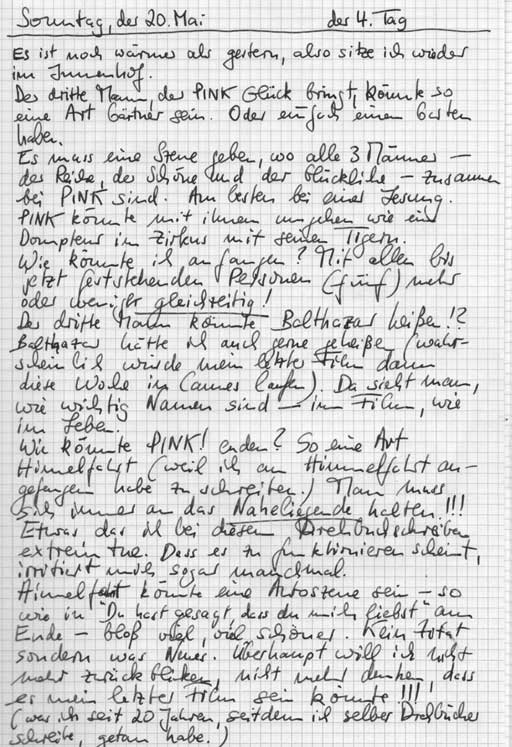 Sonntag, der 20. Mai der 4. Tag
Es ist noch wärmer als gestern, also sitze ich wieder
im Innenhof.
Der dritte Mann, der PINK Glück bringt, könnte so
eine Art Gärtner sein. Oder einfach einen Garten
haben.
Es muss eine Szene geben, wo alle 3 Männer –
der Reiche, der Schöne und der Glückliche – zusammen
bei PINK sind. Am besten bei einer Lesung.
PINK könnte mit ihnen umgehen wie ein
Dompteur im Zirkus mit seinen Tigern.
Wie könnte ich anfangen? Mit allen bis
jetzt feststehenden Personen (fünf) mehr
oder weniger gleichzeitig!
Der dritte Mann könnte Balthazar heißen!?
Balthazar hätte ich auch gerne geheißen (wahr-
scheinlich würde mein letzter Film dann
diese Woche in Cannes laufen). Da sieht man,
wie wichtig Namen sind – im Film, wie
im Leben.
Wie könnte PINK! enden? So eine Art
Himmelfahrt (weil ich an Himmelfahrt an-
gefangen habe zu schreiben.) Man muss
sich immer an das Naheliegende halten!!!
Etwas das ich bei diesem Drehbuchschreiben
extrem tue. Dass es zu funktionieren scheint,
irritiert mich sogar manchmal.
Himmelfahrt könnte eine Autoszene sein – so
wie in "Du hast gesagt, dass du mich liebst" am
Ende – bloß viel, viel schöner. Kein Zitat
sondern was Neues. Überhaupt will ich nicht
mehr zurückblicken, nicht mehr denken, dass
es mein letzter Film sein könnte!!!!
(was ich seit 20 Jahren, seitdem ich selber Drehbücher
schreibe, getan habe.)